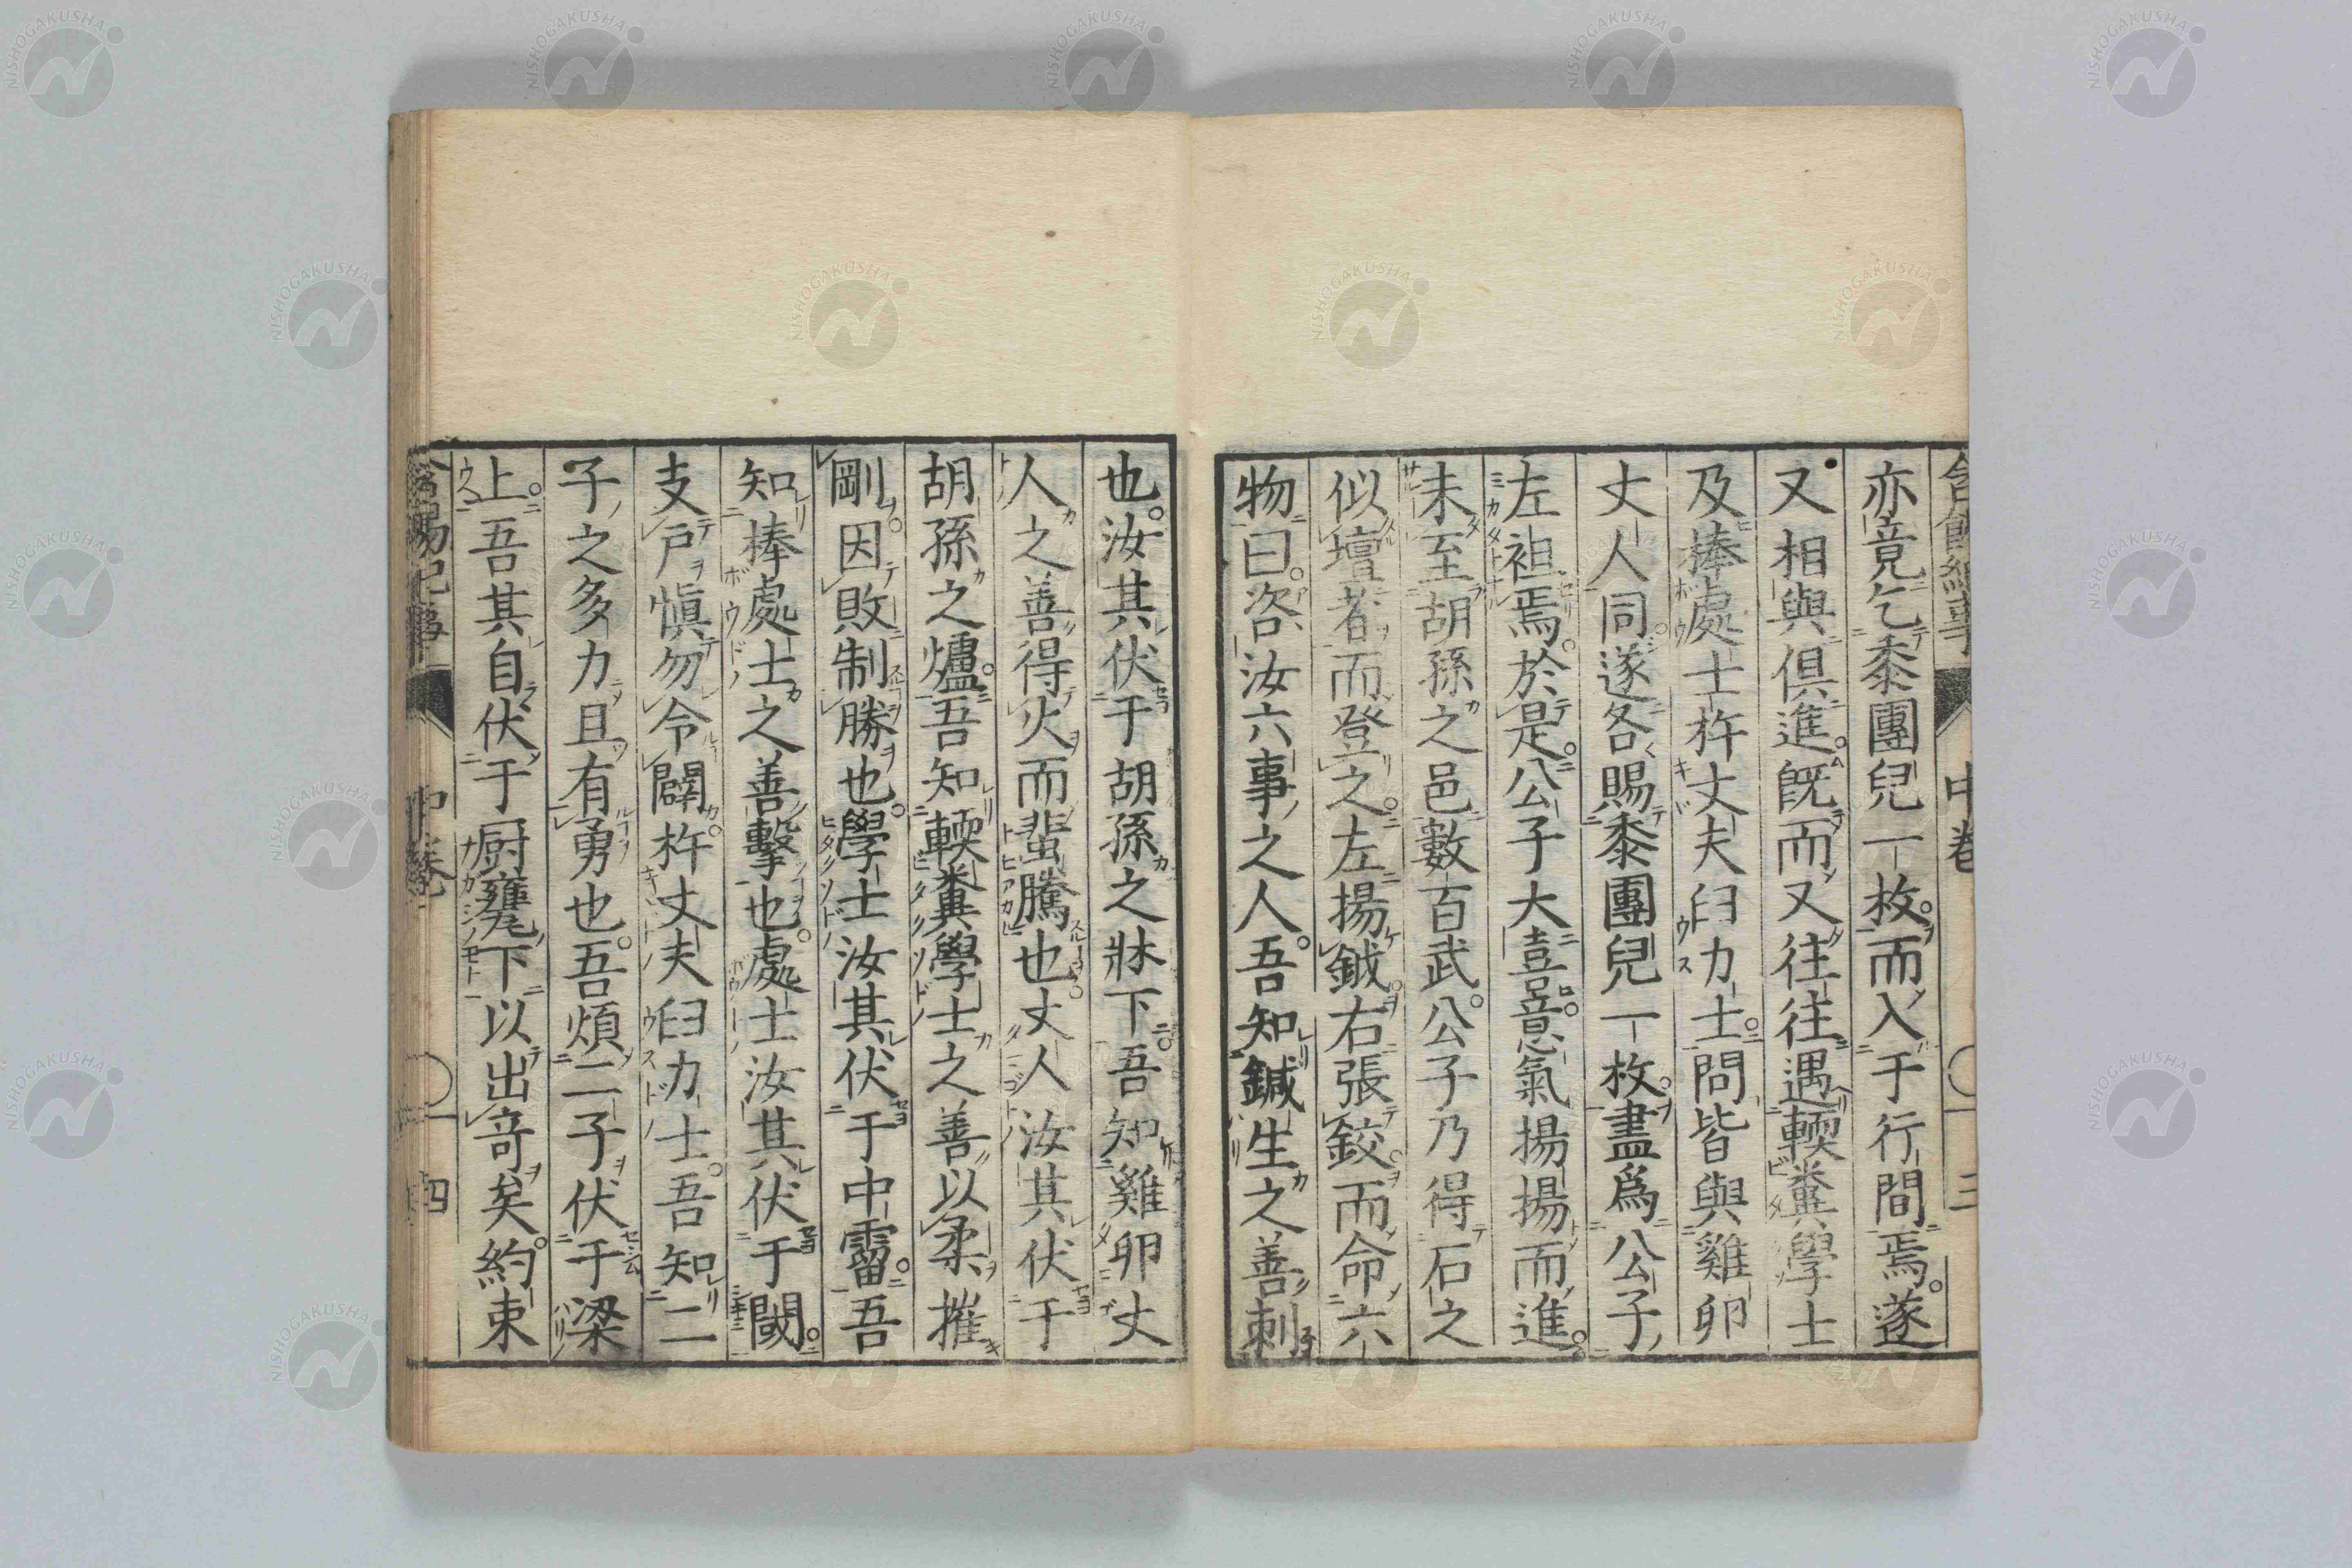 亦竟乞黍團兒一枚而入于行間焉。遂
又相與俱進。既而又往往遇輭糞學士
及棒處士杵丈夫臼力士。問皆與雞卵
丈人同。遂各賜黍團兒一枚。盡爲公子
左袒焉。於是。公子大喜。意氣揚揚而進。
未至胡孫之邑數百武。公子乃得石之
似壇者而登之。左揚鉞。右張鉸。而命六
物曰。咨汝六事之人。吾知鍼生之善刺
中卷
三
也。汝其伏于胡孫之牀下。吾知雞卵丈
人之善得火而蜚騰也。丈人汝其伏于
胡孫之爐。吾知輭糞學士之善以柔摧
剛。因敗制勝也。學士汝其伏于中霤。吾
知棒處士之善擊也。處士汝其伏于閾。
支戸愼勿令闢。杵丈夫臼力士。吾知二
子之多力且有勇也。吾煩二子伏于梁
上。吾其自伏于厨甕下以出竒矣。約束
中卷
四
NISHOGAKUSHA